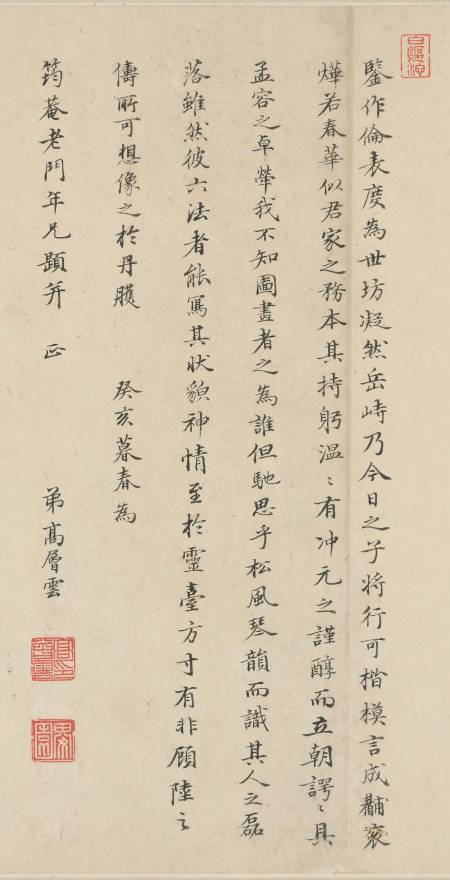 鑒作倫表度為世坊凝然岳峙乃今日之子將行可楷模言成黼衮
燁若春華似君家之務本其持躬温〻有冲元之謹醇而立朝諤〻具
孟容之卓犖我不知圖畫者之為誰但馳思乎松風琴韻而識其人之磊
落雖然彼六法者能寫其狀貌神情至於靈臺方寸有非顧陸之
儔所可想像之於丹雘
癸亥暮春為
筠菴老門年兄題并 正
弟高層雲